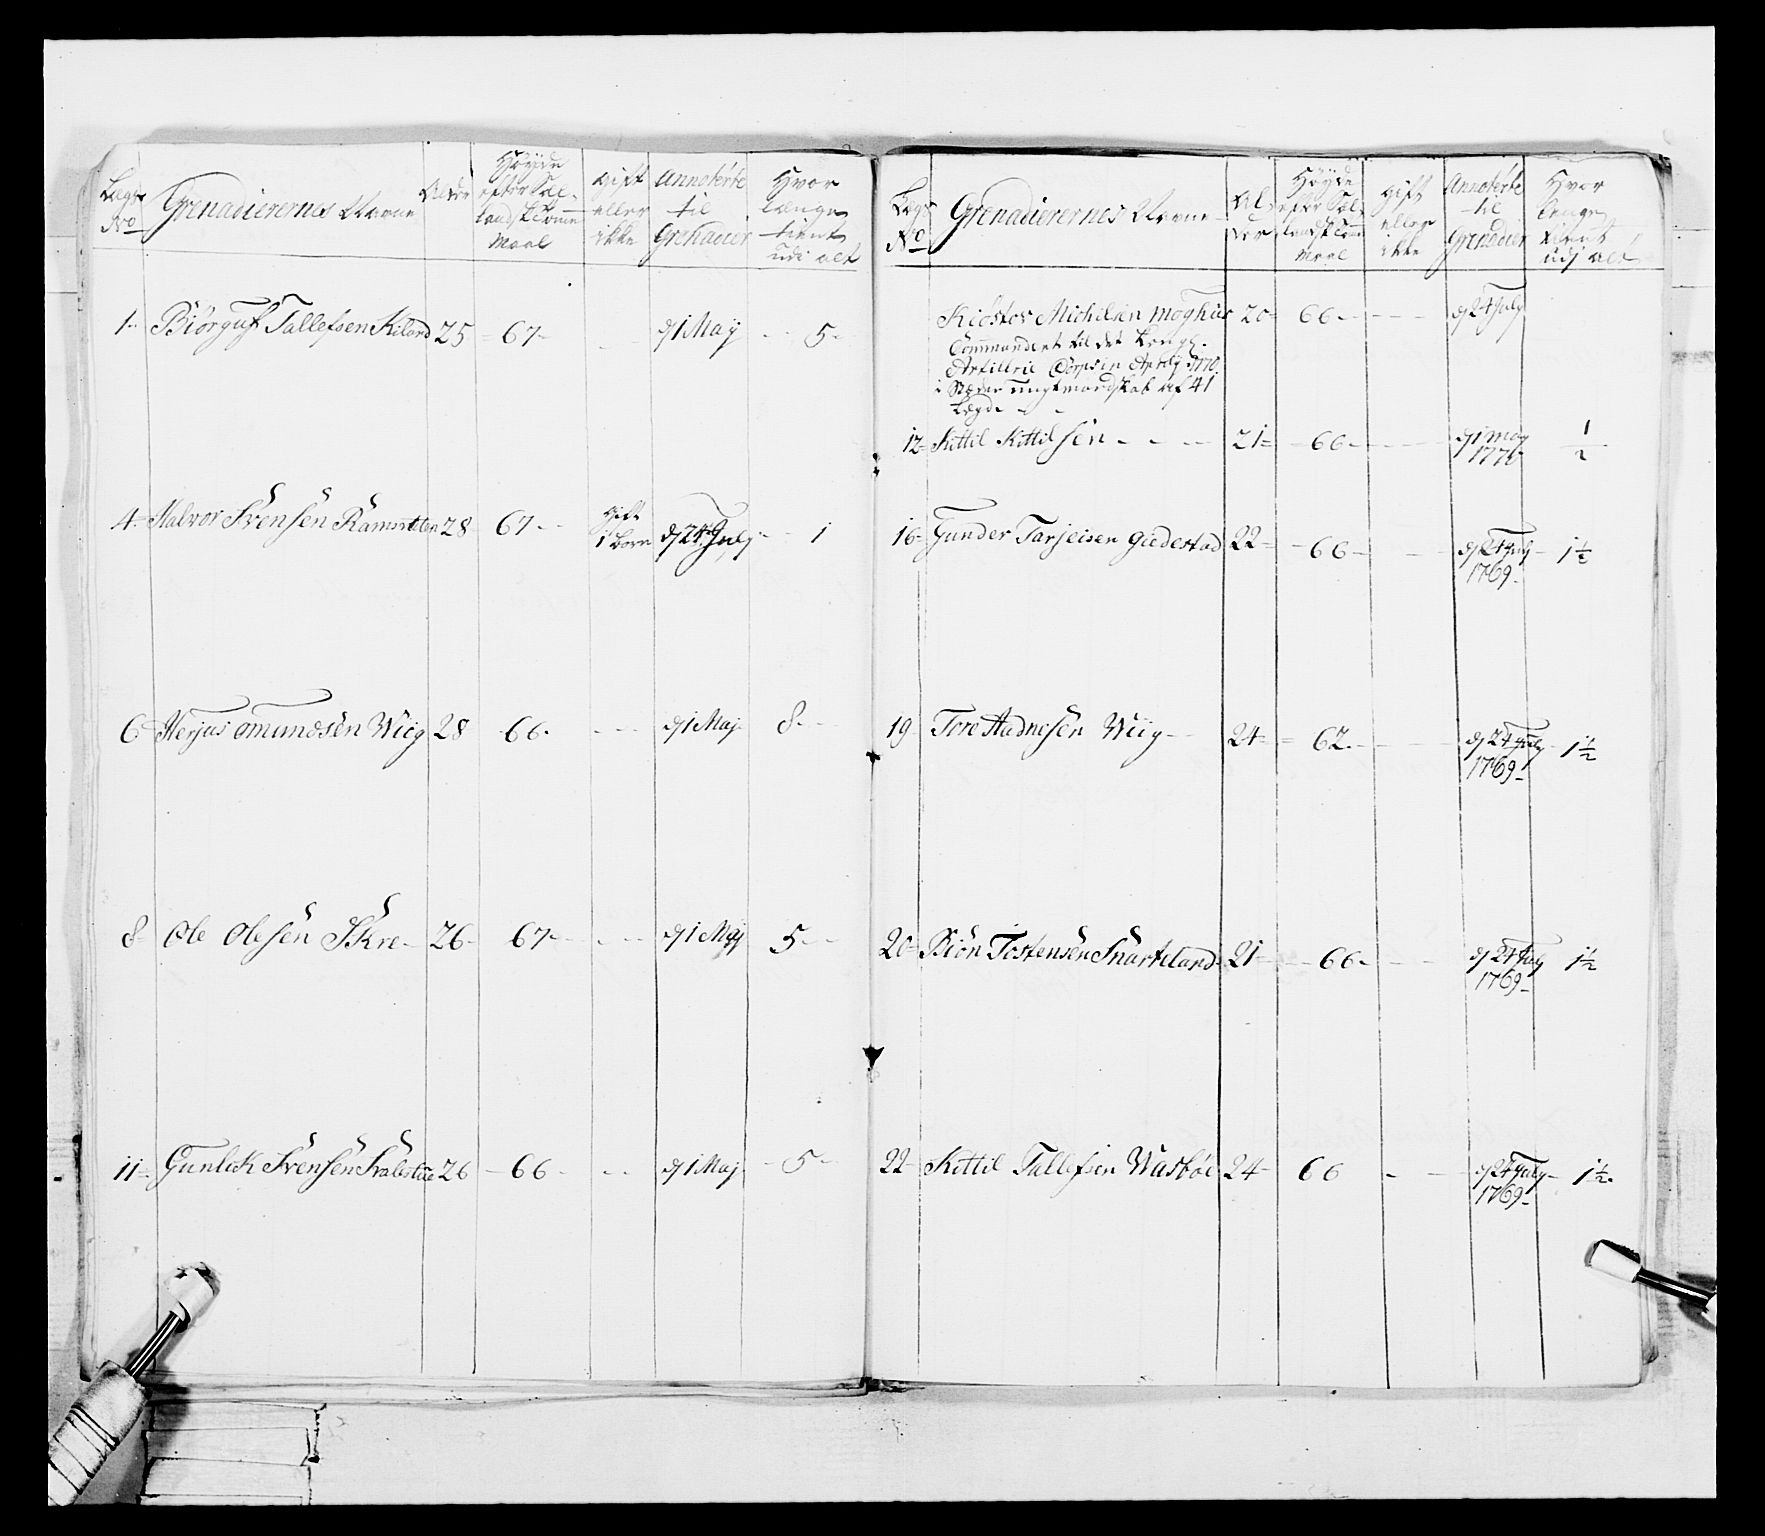 Lægs No | Grenadierernes Navne | Alder | Høyde efter Sæ- landsk Comme Maal | Gift eller ikke | Annoterte til Grenadier | Hvor længe tient udi alt
1 Biørguf Tallefsen Kiland 25 = 67 - - - d/ 1 Maij - - 5 -
4 = Halvor Svensen 28 67 - - Gift 1 Barn d/ 24 July - - 1
6 Herjus Omundsen Wiig 28 66 - - - d/ 1 Maj 8 - -
8 Ole Olesen Skre - 26 - 67 - - - d/ 1 Maij 5 - -
11 = Gunlek Svensen 26 - 66 - - - d/ 1 Maj - 5 -
Lægs No | Grenadierernes Navne | Al der | Høyde efter Sæl- landsk Comme Maal | Gift eller ikke | Annoterte til Grenadier | Hvor lenge tient udj alt
Kiøstov Michelsen 20 = 66 - - - - d/ 24 July
Commandert til det Kongl.
Artillerie Corps in Aprily 1770.
i Stæden ungt mandskab af 41
Lægd - -
12 = Kittil Kittilsen - - - 21 = - 66 - - - d/ 1 May 1770 1/2
16 = Gunder Tarjeisen Giedestad 22 = - 66 - - - d/ 24 July 1769 - 1 1/2
19 Tore Aadnesen Wiig - - 24 = = 62 - - - d/ 24 July 1769 - 1 1/2
20 = Biøn Tostensen Snarteland 21 = - 66 - - - d/ 24 July 1769 - 1 1/2
22 Kittil Tallefsen Wasbøe 24 - 66 - - d/ 24 July 1769 - 1 1/2